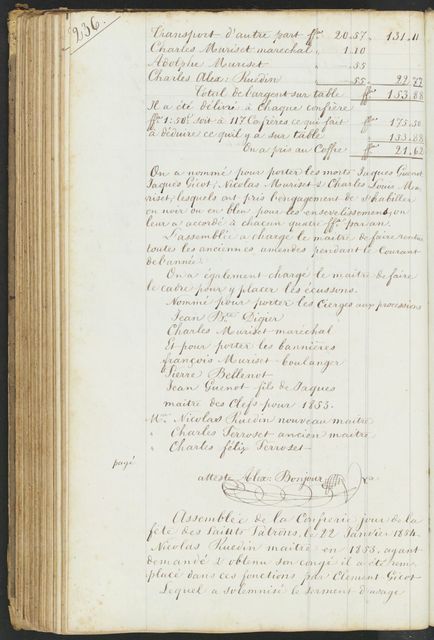 236.
Transport d'autre part ffr 20.57. 131.11
Charles Muriset marechal, 1.10
Adolphe Muriset " .55
Charles Alex: Ruedin " .55. 22.77
Total de l'argent sur table ffr 153.88
Il a été délivré à chaque confrère
ffr 1:50c soit à 117 Cofrères ce qui fait ffr 175.50
à déduire ce qu'il y a sur table 153.88
On a pris au Coffre ffr 21.62
On a nommé pour porter les morts Jaques Guenot
Jaques Gicot, Nicolas Muriset & Charles Louis Mu-
riset, lesquels ont pris l'engagement de s'habiller
en noir ou en bleu pour les ensevelissements, on
leur a accordé à chacun quatre ffr par an.
L'assemblée a chargé le maitre de faire rentrer
toutes les anciennes amendes pendant le Courant
de l'année.
On a également chargé le maitre de faire
le cadre pour y placer les écussons.
Nommé pour porter les Cierges aux processions
Jean Bte Digier
Charles Muriset maréchal
Et pour porter les bannières
françois Muriset boulanger
Pierre Bellenot
Jean Guenot fils de Jaques
maitre des Clefs pour 1853.
Mrs Nicolas Ruedin nouveau maitre
" Charles Perroset ancien maitre
" Charles félix Perroset
payé
atteste Alex: Bonjour
Assemblée de la Confrerie jour de la
fête des Saints Patrons, le 22 Janvier 1854.
Nicolas Ruedin maitre en 1853, ayant
demandé & obtenu son congé il a été rem-
placé dans ces fonctions par Clement Gicot
Lequel a solemnisé le serment d'usage